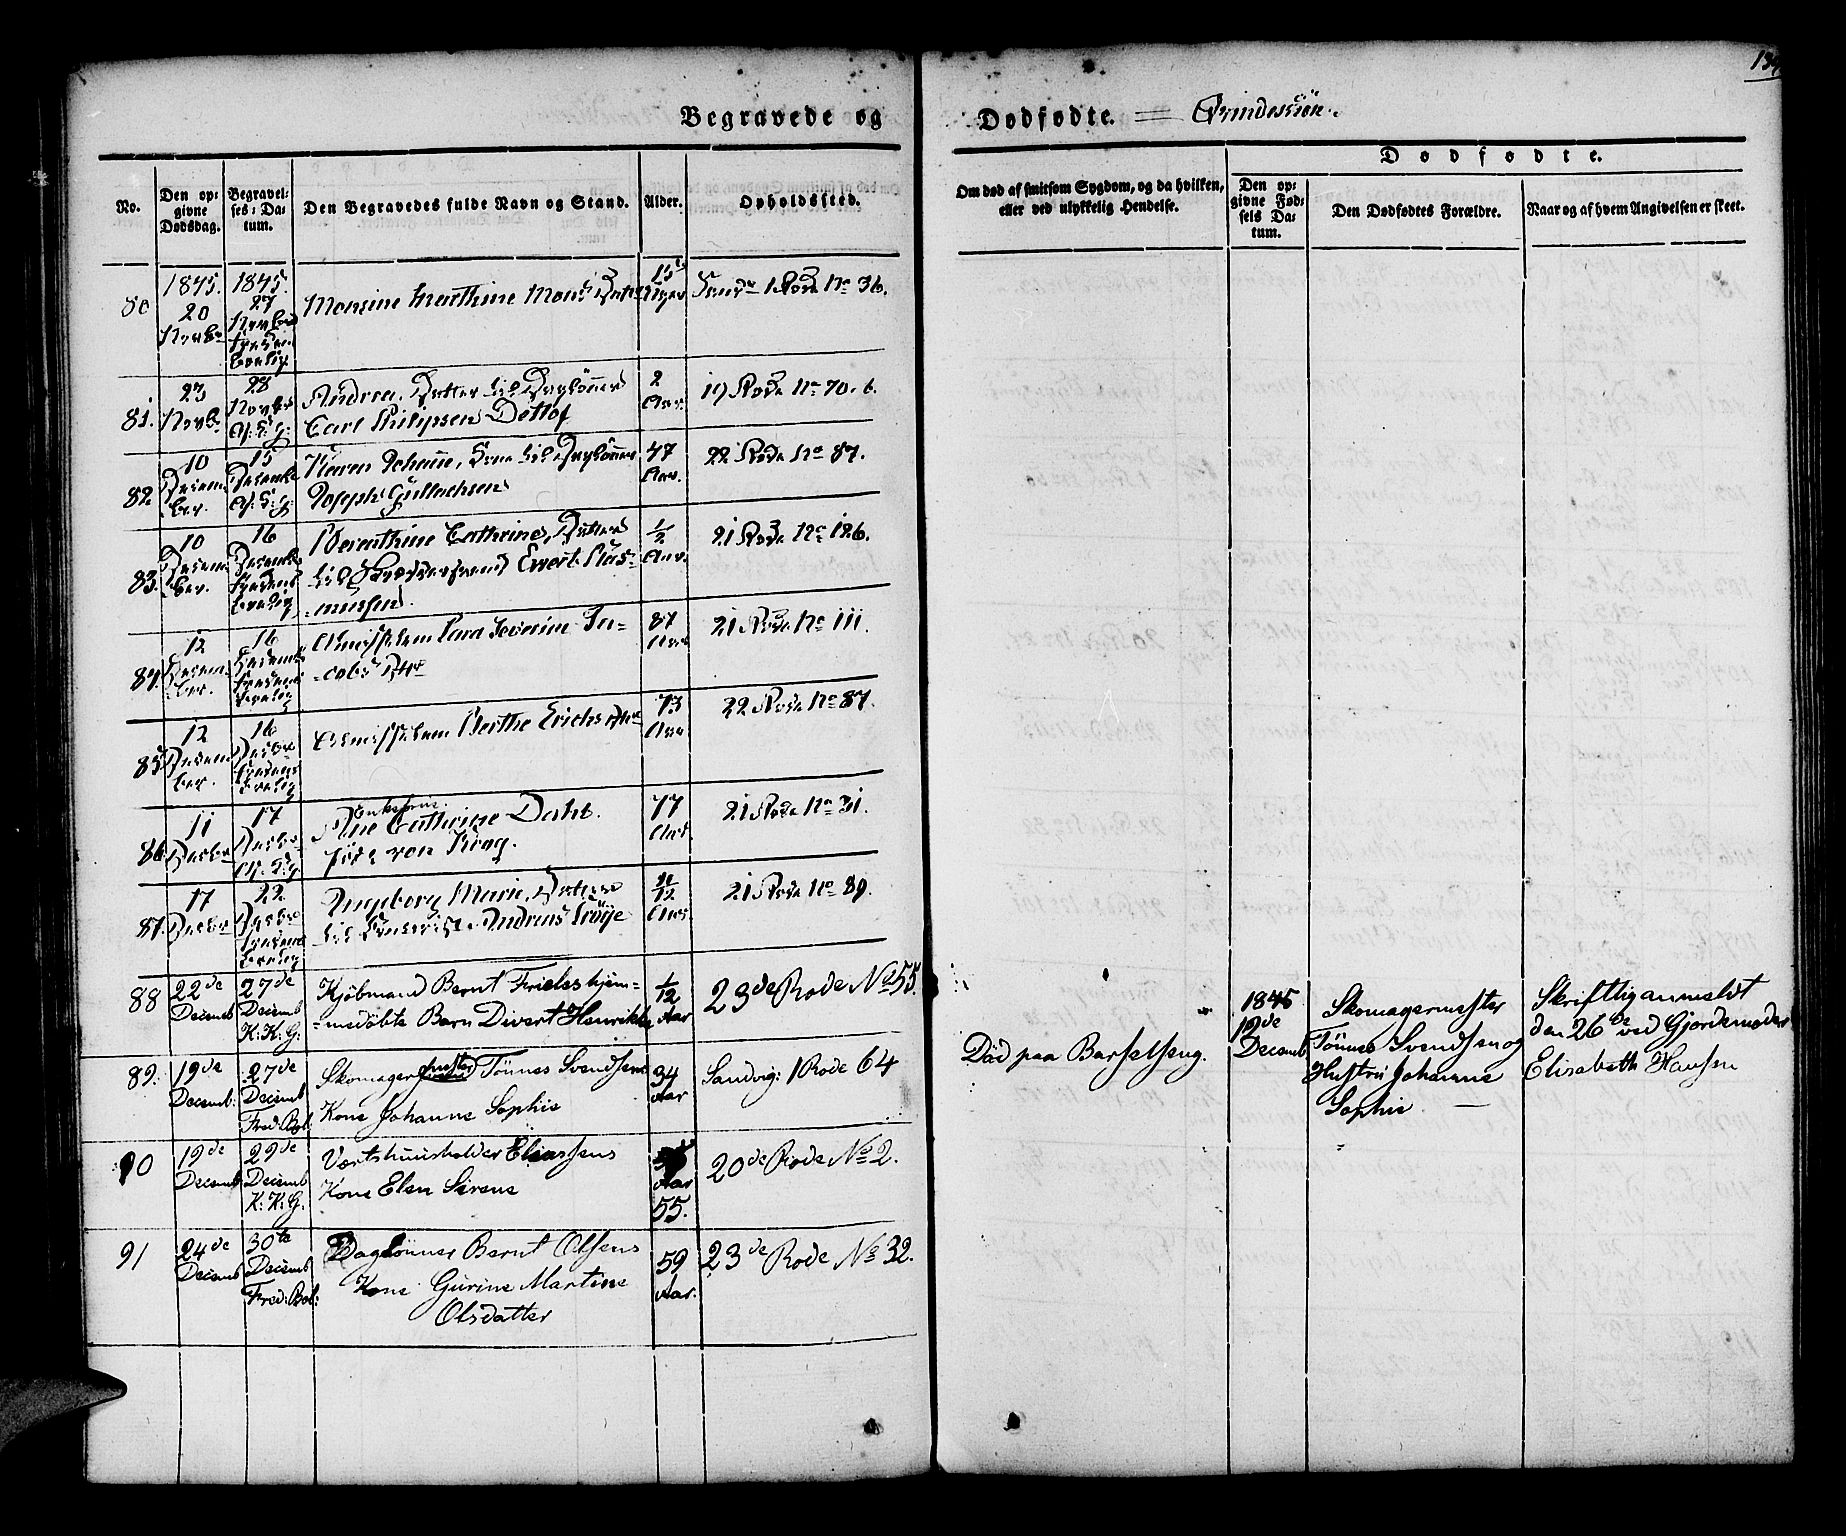 134
Begravede og Dødfødte. = Qvindekjøn.
No.
Den opgivne Dødsdag.
Begravelses-Datum.
Den Begravedes fulde Navn og Stand.
Alder.
Opholdssted.
Om død af smitsom Sygdom, og da hvilken, eller ved ulykkelig Hendelse.
Dødfødte.
Den opgivne Fødsels Datum.
Den Dødfødtes Forældre.
Naar og af hvem Angivelsen er skeet.
80 1845. 20 Novbr 1845. 27 Monsine Marthine Mons Datter 15 Uger 1 Rode No 36.
81. 23 Novbr 28 Novbr Andrea, Datter til Daglønner
Carl Philipsen Dettlof
2 Aar. 19 Rode No 70. b.
82 10 Decem-ber. 15 Karen Johanne, Kone til Daglønner
Joseph Gullachsen
47 Aar. 22 Rode No 87.
83. 10 Decem-ber. 16 Berenthine Cathrine, Datter
til Evert Ras-
mussen.
1/2 Aar. 21 Rode No 126.
84. 12 Decem-ber. 16 Almisselem Sara Severine Ja-
cobs Dtr
87 Aar 21 Rode No 111.
85 12 Decem-ber. 16 Almisselem Berthe Erichs Dtr 73 Aar 22 Rode No 87.
86 11 Decbr 17 Enkefrue
Ane Cathrine Dahl.
født von Krog.
77 Aar. 21 Rode No 31.
87. 17 Decbr 22 Ingeborg Marie, Datter
til Andreas Trøye
11/12 Aar. 21 Rode No 89.
88 22de Decemb 27de Decemb K: K: G: Kjøbmand Bernt Frieles hjem-
=medøbte Barn Divert Henrikke
1/12 Aar 23de Rode No 55.
89. 19de Decemb: 27de Decemb Fred: Bol: Skomagermester Tönnes Svendsens
Kone Johanne Sophie
34 Aar Sandvig: 1 Rode 64
Død paa Barselseng.
1845 19de Decemb Skomagermester
Tönnes Svendsen og
Hustru Johanne
Sophie. —
Skriftlig anmeldt
den 26de ved Gjordemoder
Elisabeth Hansen
90 19de Decemb 29de Decemb K: K: G. Værtshuusholder Eliassens
Kone Elen Sirene
Aar 55. 20de Rode No 2.
91 24de Decemb 30te Decemb Fred: Bol: Daglønner Bernt Olsens
Kone Gurine Martine
Olsdatter
59 Aar. 23de Rode No 32.